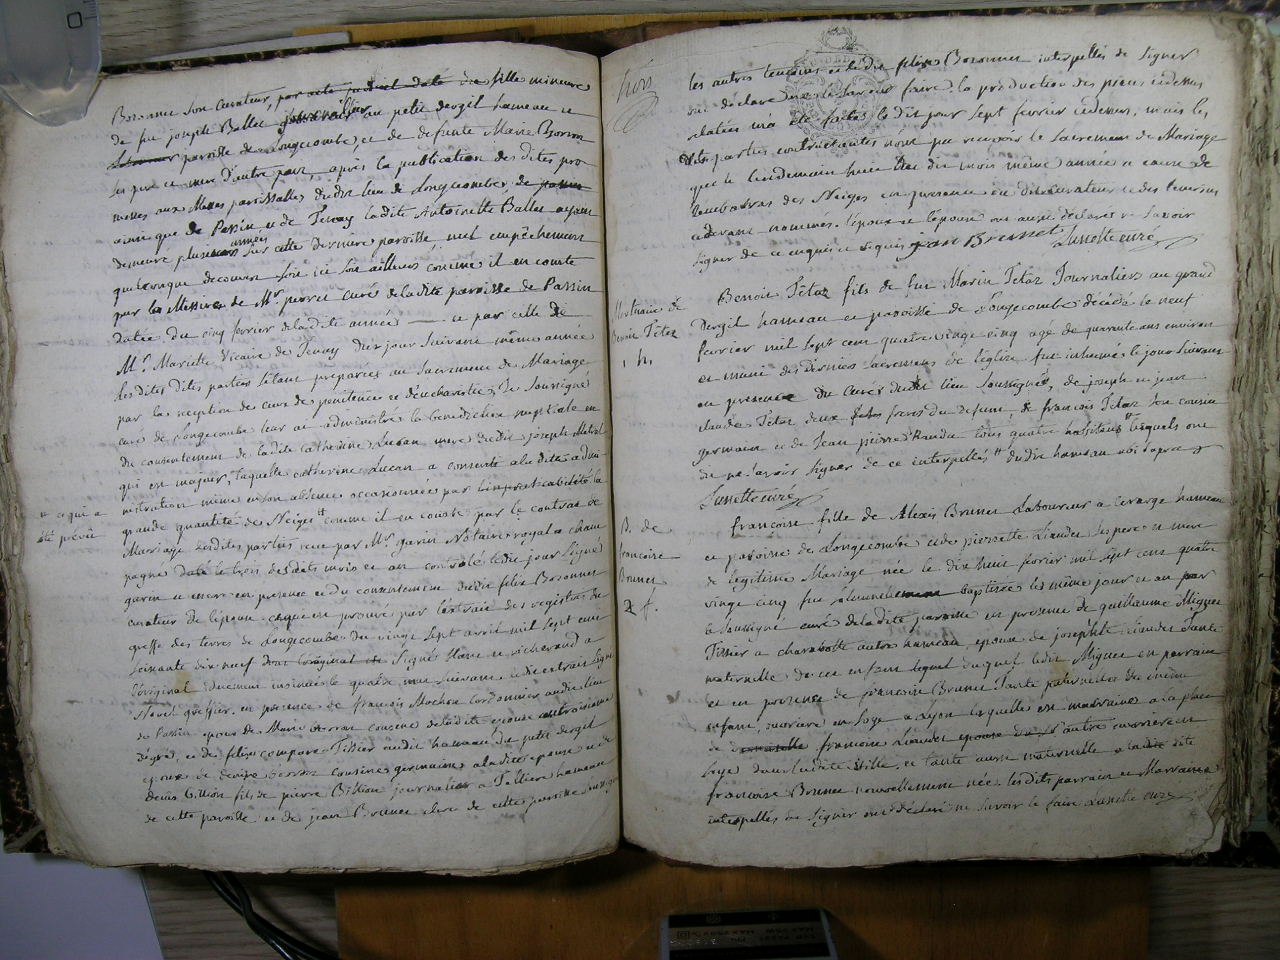 Bozonnet son curateur, par acte judiciel daté du fille mineure
de feu joseph Ballet journallier au petit dergil hameau et
paroisse de Longecombe, et de defunte Marie Bozon
ses pere et mere d'autre part, après la publication des dites pro
messes aux Messes paroissialles dudit lieu de Longecombe, de
ainsi que de Passin, et de Tenay ladite Antoinette Ballet ayant
demeuré plusieurs années sur cette derniere paroisse, nul empêchement
quelconque decouvert soit ici soit ailleurs comme il en conste
par la Missive de Mr perret curé de ladite paroisse de Passin
datée du cinq fevrier de ladite année et par celle de
Mr Mariette Vicaire de Tenay du jour suivant même année
lesdites dites parties s'étant preparées au Sacrement de Mariage
par la reception de ceux de penitence et d'eucharistie, Je Soussigné
curé de Longecombe leur ai administré la benediction nuptiale en
du consentement de ladite catherine Lucan mere dudit joseph
qui est majeur, laquelle catherine Lucan a consenti a ladite admi
nistration même en son absence occasionnée par l'impraticabilité la
" ce qui a
été prévû
grande quantité de Neiges " comme il en conste par le contrat de
Mariage desdites parties reçu par Mr garin Notaire royal a cham
pagne daté le trois desdits mois et an controlé ledit jour Signé
garin et encore en presence et du consentement dudit felix Bozonnet
curateur de l'epouse ce que est prouvé par l'extrait des registres du
greffe des terres de Longecombe du vingt sept avril mil sept cent
soixante dix neuf Signé et richerand a
l'original duement insinué le quatre mai suivant, ledit extrait signé
greffier. en presence de françois Mochon cordonnier audit lieu
de Passin epoux de Marie cousine de ladite epouse au troisieme
degré, et de felix compere Tissier audit hameau du petit dergil
epoux de cousine germaine a ladite epouse et de
denis Billion fils de pierre Billion journalier a hameau
de cette paroisse et de jean Brunet clerc de cette paroisse soussigné
hors
les autres temoins et ledit felix Bozonnet interpellés de signer
ont déclaré ne le scavoir faire. la production des pieces cidessus
relatées m'a été faite le dit jour sept fevrier cidessus, mais les
dites parties contractantes n'ont pu recevoir le sacrement de Mariage
que le lendemain huit du dit mois même année a cause de
l'embarras des Neiges en presence du dit curateur et des temoins
cidevant nommés. l'epoux et l'epouse ont aussi déclarés ne savoir
signer de ce enquis et requis jean Brunet Lunette curé
Mortuaire de
Benoit Tétaz
1 h.
Benoit Tétaz fils de feu Marin Tétaz Journaliers au grand
dergil hameau et paroisse de Longecombe décédé le neuf
fevrier mil sept cent quatre vingt cinq agé de quarante ans environ
et muni des derniers sacremens de l'eglise fut inhumé le jour suivant
en presence du curé dudit lieu soussigné, de joseph et jean
claude Tétaz deux freres du defunt, de françois Tétaz son cousin
germain et de Jean pierre Randu tous quatre habitans " lesquels ont
dit ne savoir signer de ce interpellés " du dit hameau
Lunette curé
B. de
francoise
Brunet
2 f.
francoise fille de Alexis Brunet Laboureur a hameau
et paroisse de Longecombe et de pierrette Liaudet ses pere et mere
de legitime Mariage née le dix huit fevrier mil sept cent quatre
vingt cinq fut solemnellement baptisée les même jour et an par
le soussigné curé de ladite paroisse en presence de guillaume Miguet
Tissier a charabotte autre hameau, epoux de josephte Liaudet Tante
maternelle de cet enfant lequel duquel ledit Miguet est parrain
et en presence de francoise Brunet Tante paternelle du même
enfant, ouvriere en soye a Lyon laquelle est marraine a la place
de francoise Liaudet autre ouvriere en
soye dans ladite ville, et tante aussi maternelle a ladite dite
francoise Brunet nouvellement née. lesdits parrain et Marraine
interpellés de signer ont déclaré ne savoir le faire Lunette curé